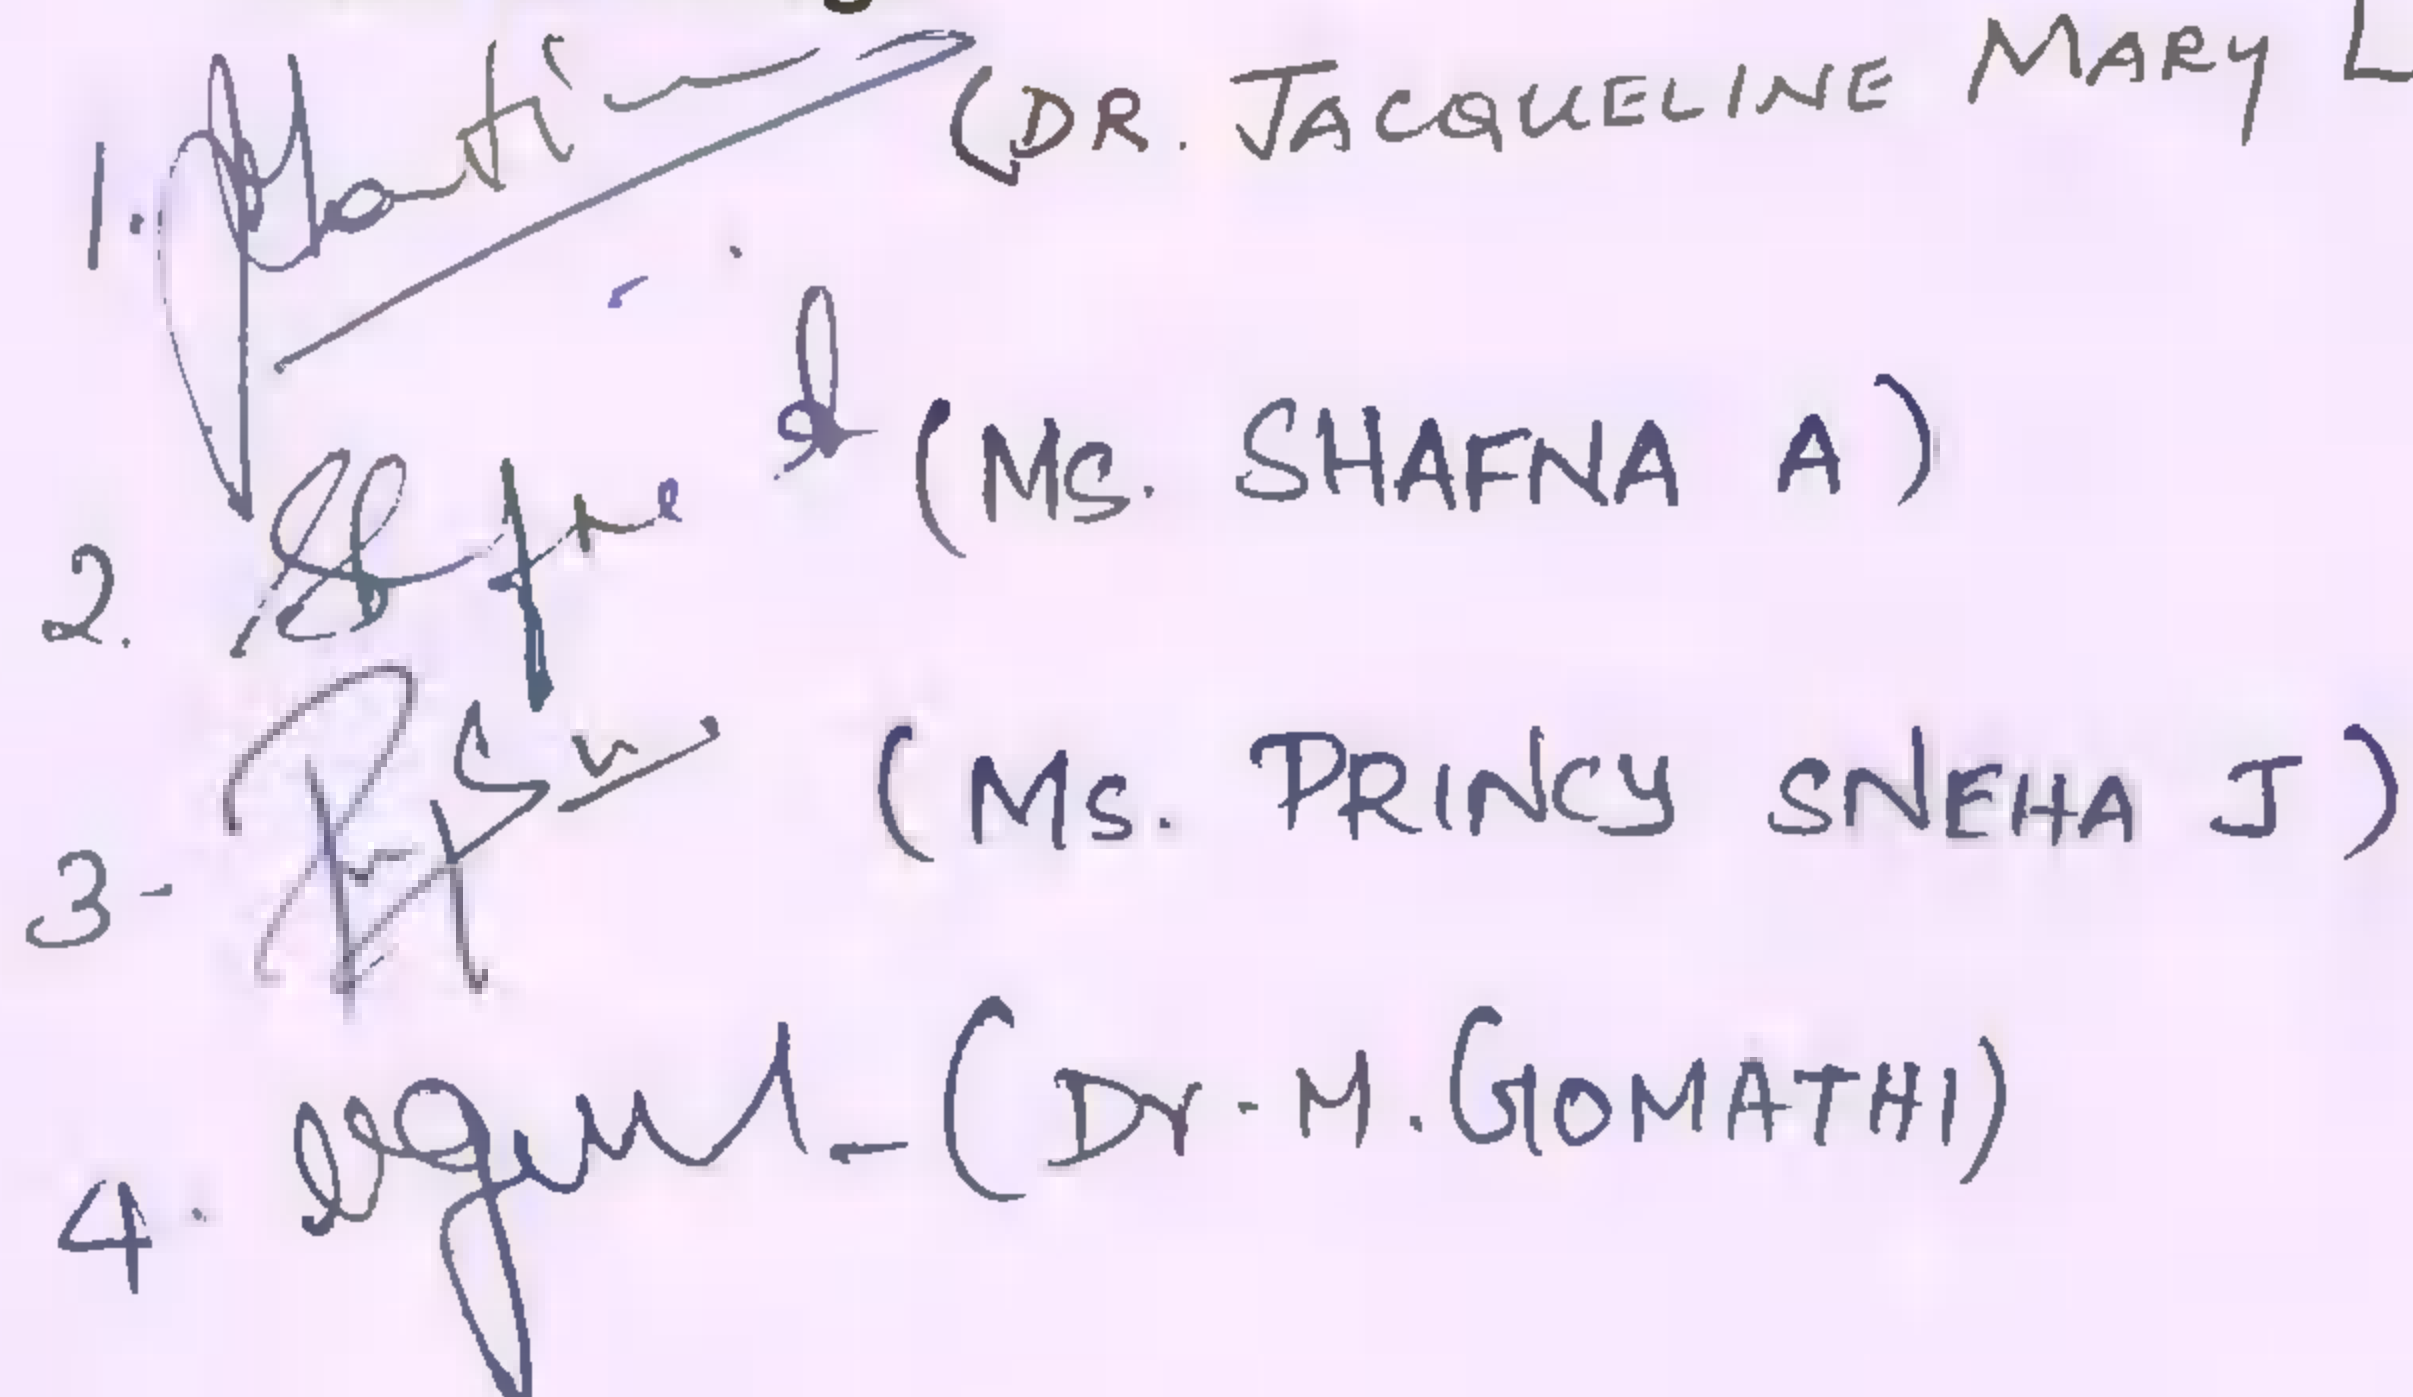 1. (DR. JACQUELINE MARY L
2. (MS. SHAFNA A)
3- (MS. PRINCY SNEHA J)
4. (Dr. M. GOMATHI)